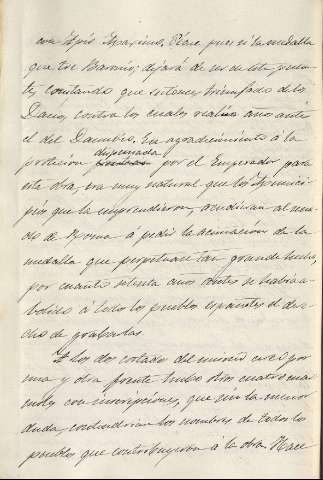 con Aquis Maximus. Véase pues si la medalla
que trae Barrios; dejará de ser de este puen-
te, constando que entonces triunfado de los
Dacios, contra los cuales realizó años ante
el del Danubio. En agradecimiento á la
dispensada
protección por el Emperador para
esta obra, era muy natural que los Munici-
pios que la emprendieron, acudieran al sena-
do de Roma á pedir la acuñacion de la
medalla que perpetuase tan grande hecho,
por cuanto setenta años antes se habia a-
bolido á todos los pueblos españoles el dere-
cho de grabarlas.
A los dos costados del mismo arco por
una y otra frente hubo otros cuatro mar-
moles con inscripciones, que sin la menor
duda, contendrian los nombres de todos los
pueblos que contribuyeron á la obra. Hace